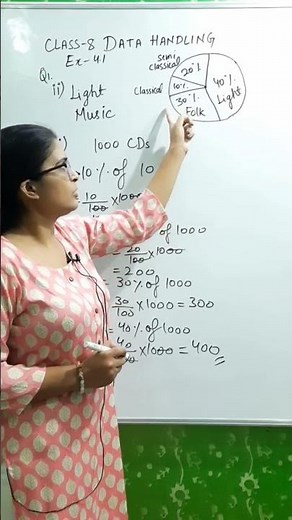 CLASS-8 DATA HANDLING
Ex-4.1
Q1.
ii) Light
Music
semi
classical
20%
Classical
10%
40%
Light
30%
Folk
) 1000 CDs
10% of 10
10/100 × 1000
of 1000
= 20/100 × 1000
= 200
= 30% of 1000
30/100 × 1000 = 300
= 40% of 1000
40 × 1000 = 400